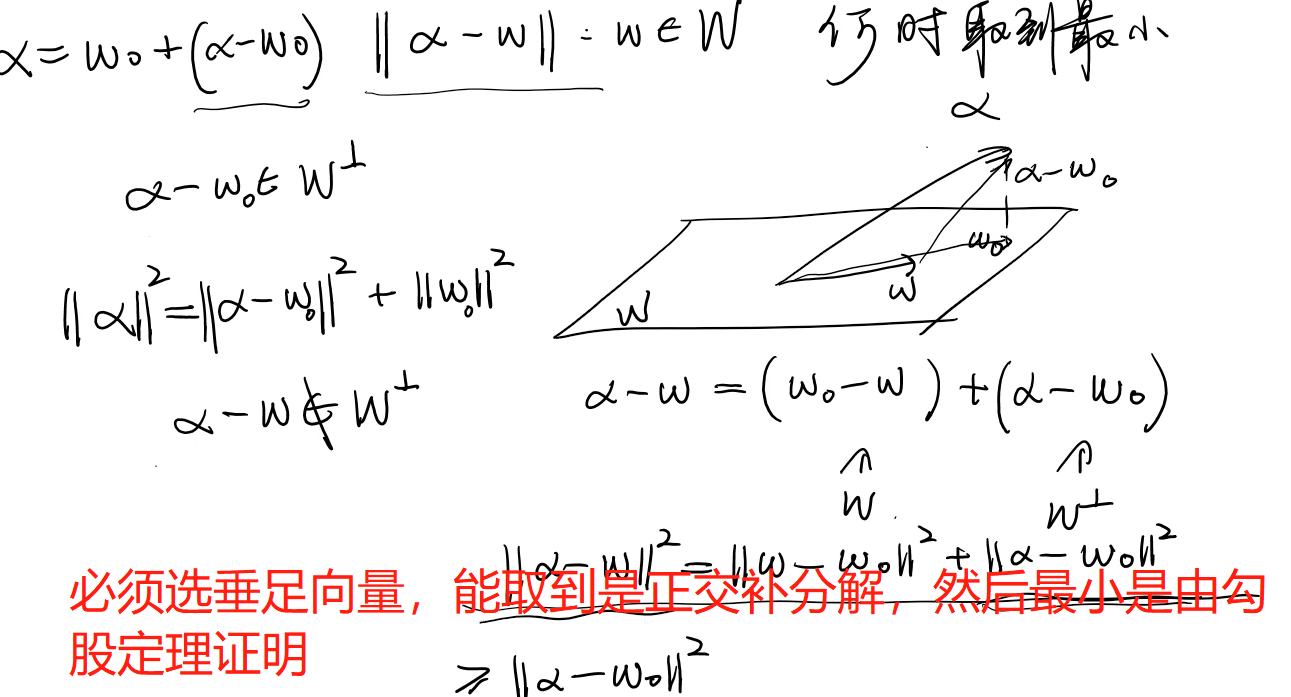 α = w₀ + (α-w₀)  ‖α-w‖ : w ∈ W  何时取到最小
α
α-w₀ ∈ W^⊥
α-w₀
w₀
w
W
‖α‖² = ‖α-w₀‖² + ‖w₀‖²
α-w ∉ W^⊥
α-w = (w₀-w) + (α-w₀)
W  W^⊥
‖α-w‖² = ‖w-w₀‖² + ‖α-w₀‖²
必须选垂足向量，能取到是正交补分解，然后最小是由勾
股定理证明
≥ ‖α-w₀‖²